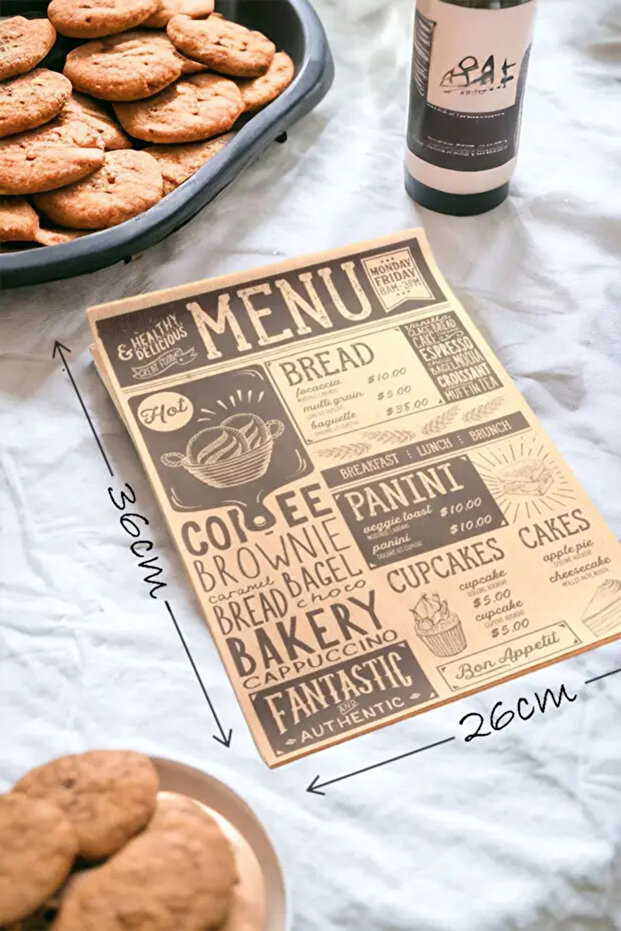 & HEALTHY
DELICIOUS
GREAT FOOD
MENU
MONDAY
FRIDAY
8AM-3PM
Hot
BREAD
focaccia $10.00
multi grain $5.00
baguette $38.00
vanilla
CAKE
ESPRESSO
BAGEL MOCHA
CROISSANT
MUFFIN TEA
BREAKFAST : LUNCH : BRUNCH
PANINI
veggie toast $10.00
panini $10.00
COFFEE
BROWNIE
caramel BAGEL
BREAD choco
BAKERY
CAPPUCCINO
FANTASTIC
AND
AUTHENTIC
CUPCAKES
cupcake
$5.00
cupcake
$5.00
CAKES
apple pie
cheesecake
Bon Appetit
36cm
26cm